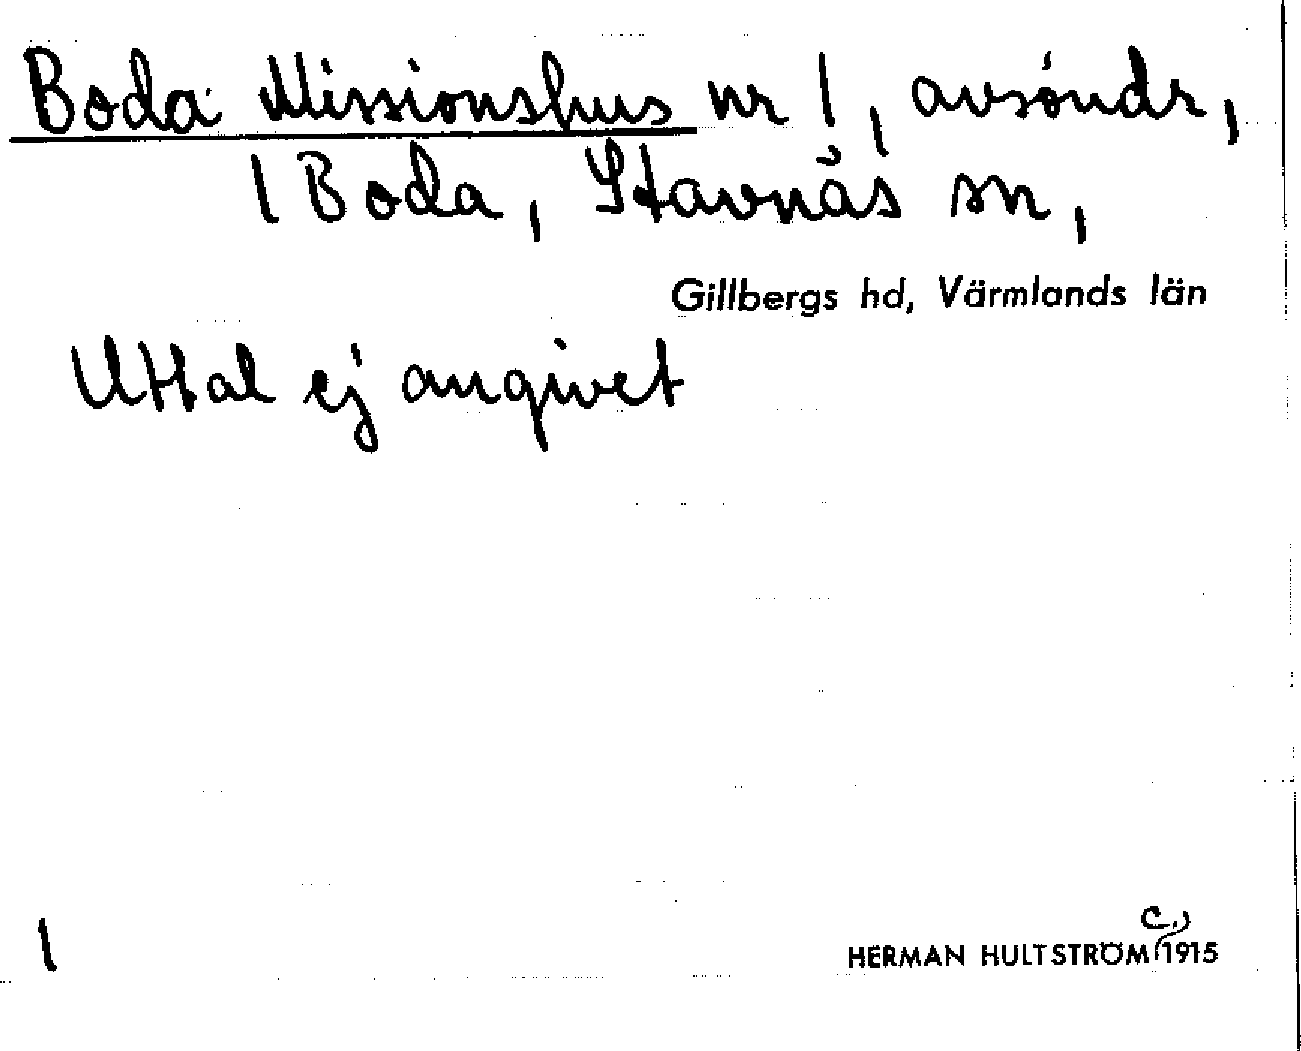 Boda Missionshus nr 1, avsöndr,
1 Boda, Stavnäs sn,
Gillbergs hd, Värmlands län
Uttal ej angivet
1
c.)
HERMAN HULTSTRÖM 1915